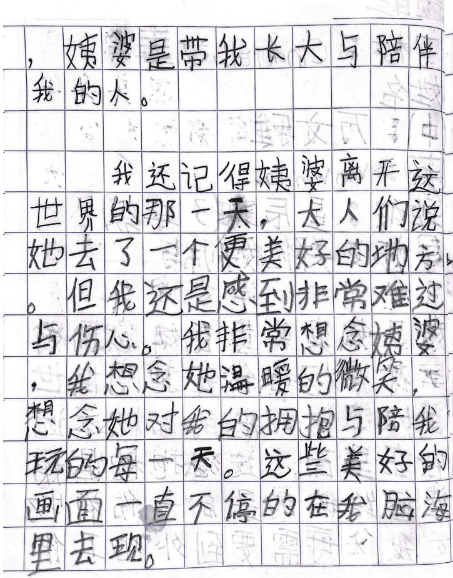 ，姨婆是带我长大与陪伴
我的人。
我还记得姨婆离开这
世界的那一天，大人们说
她去了一个更美好的地方
。但我还是感到非常难过
与伤心。我非常想念姨婆
，我想念她温暖的微笑，
想念她对我的拥抱与陪我
玩的每一天。这些美好的
画面一直不停的在我脑海
里去现。